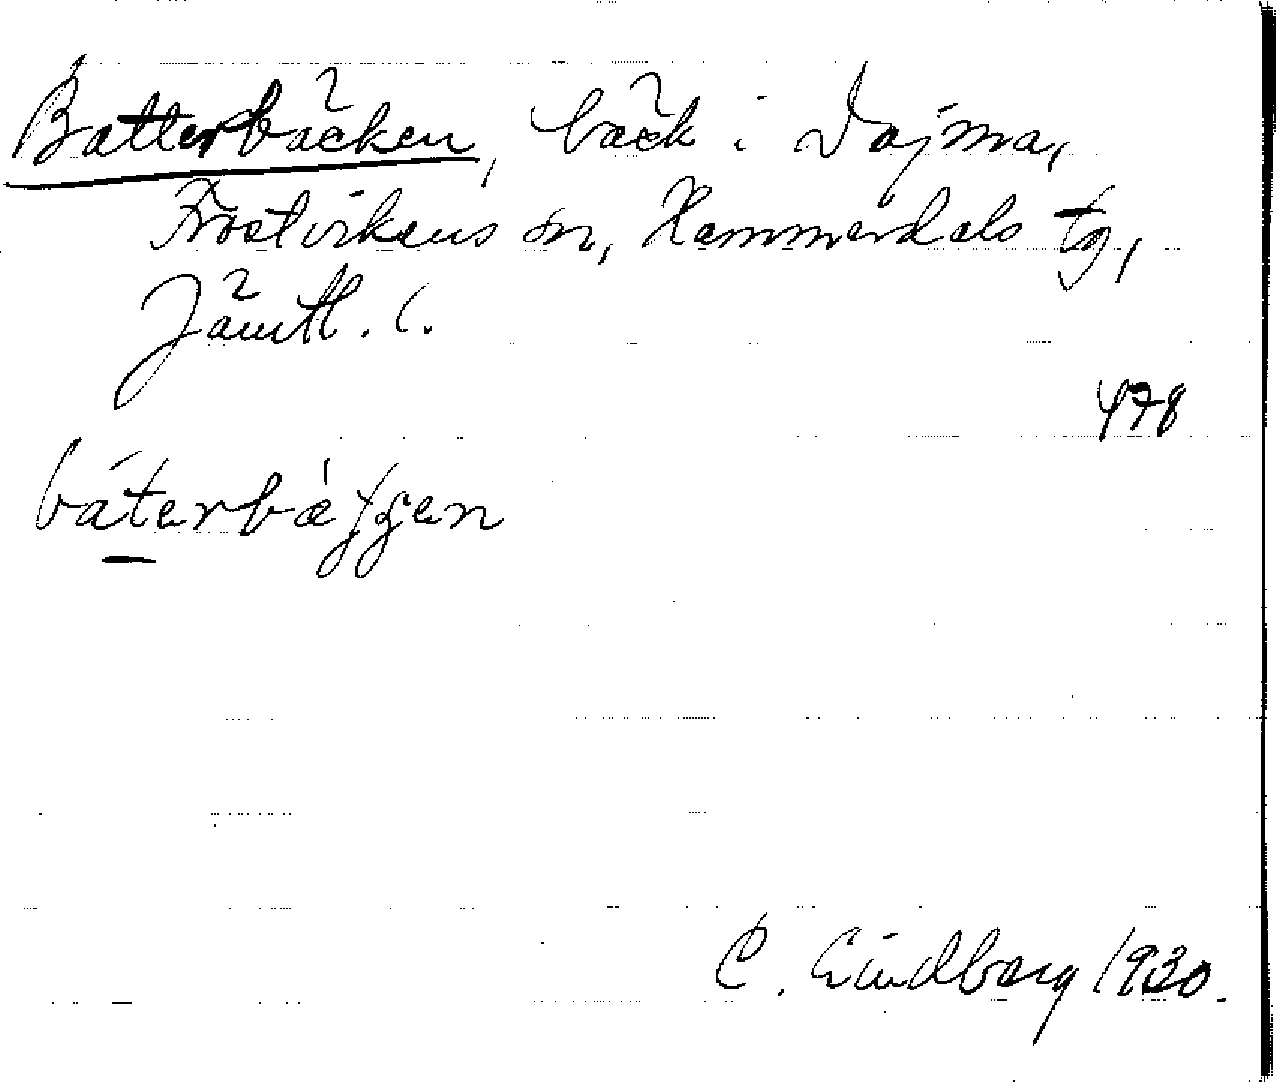 Batterbäcken, bäck i Dajma,
Frostvikens sn, Hammerdals tg,
Jämtl. l.
478
báterbæ̀ʃʃen
C. Lindberg 1930.